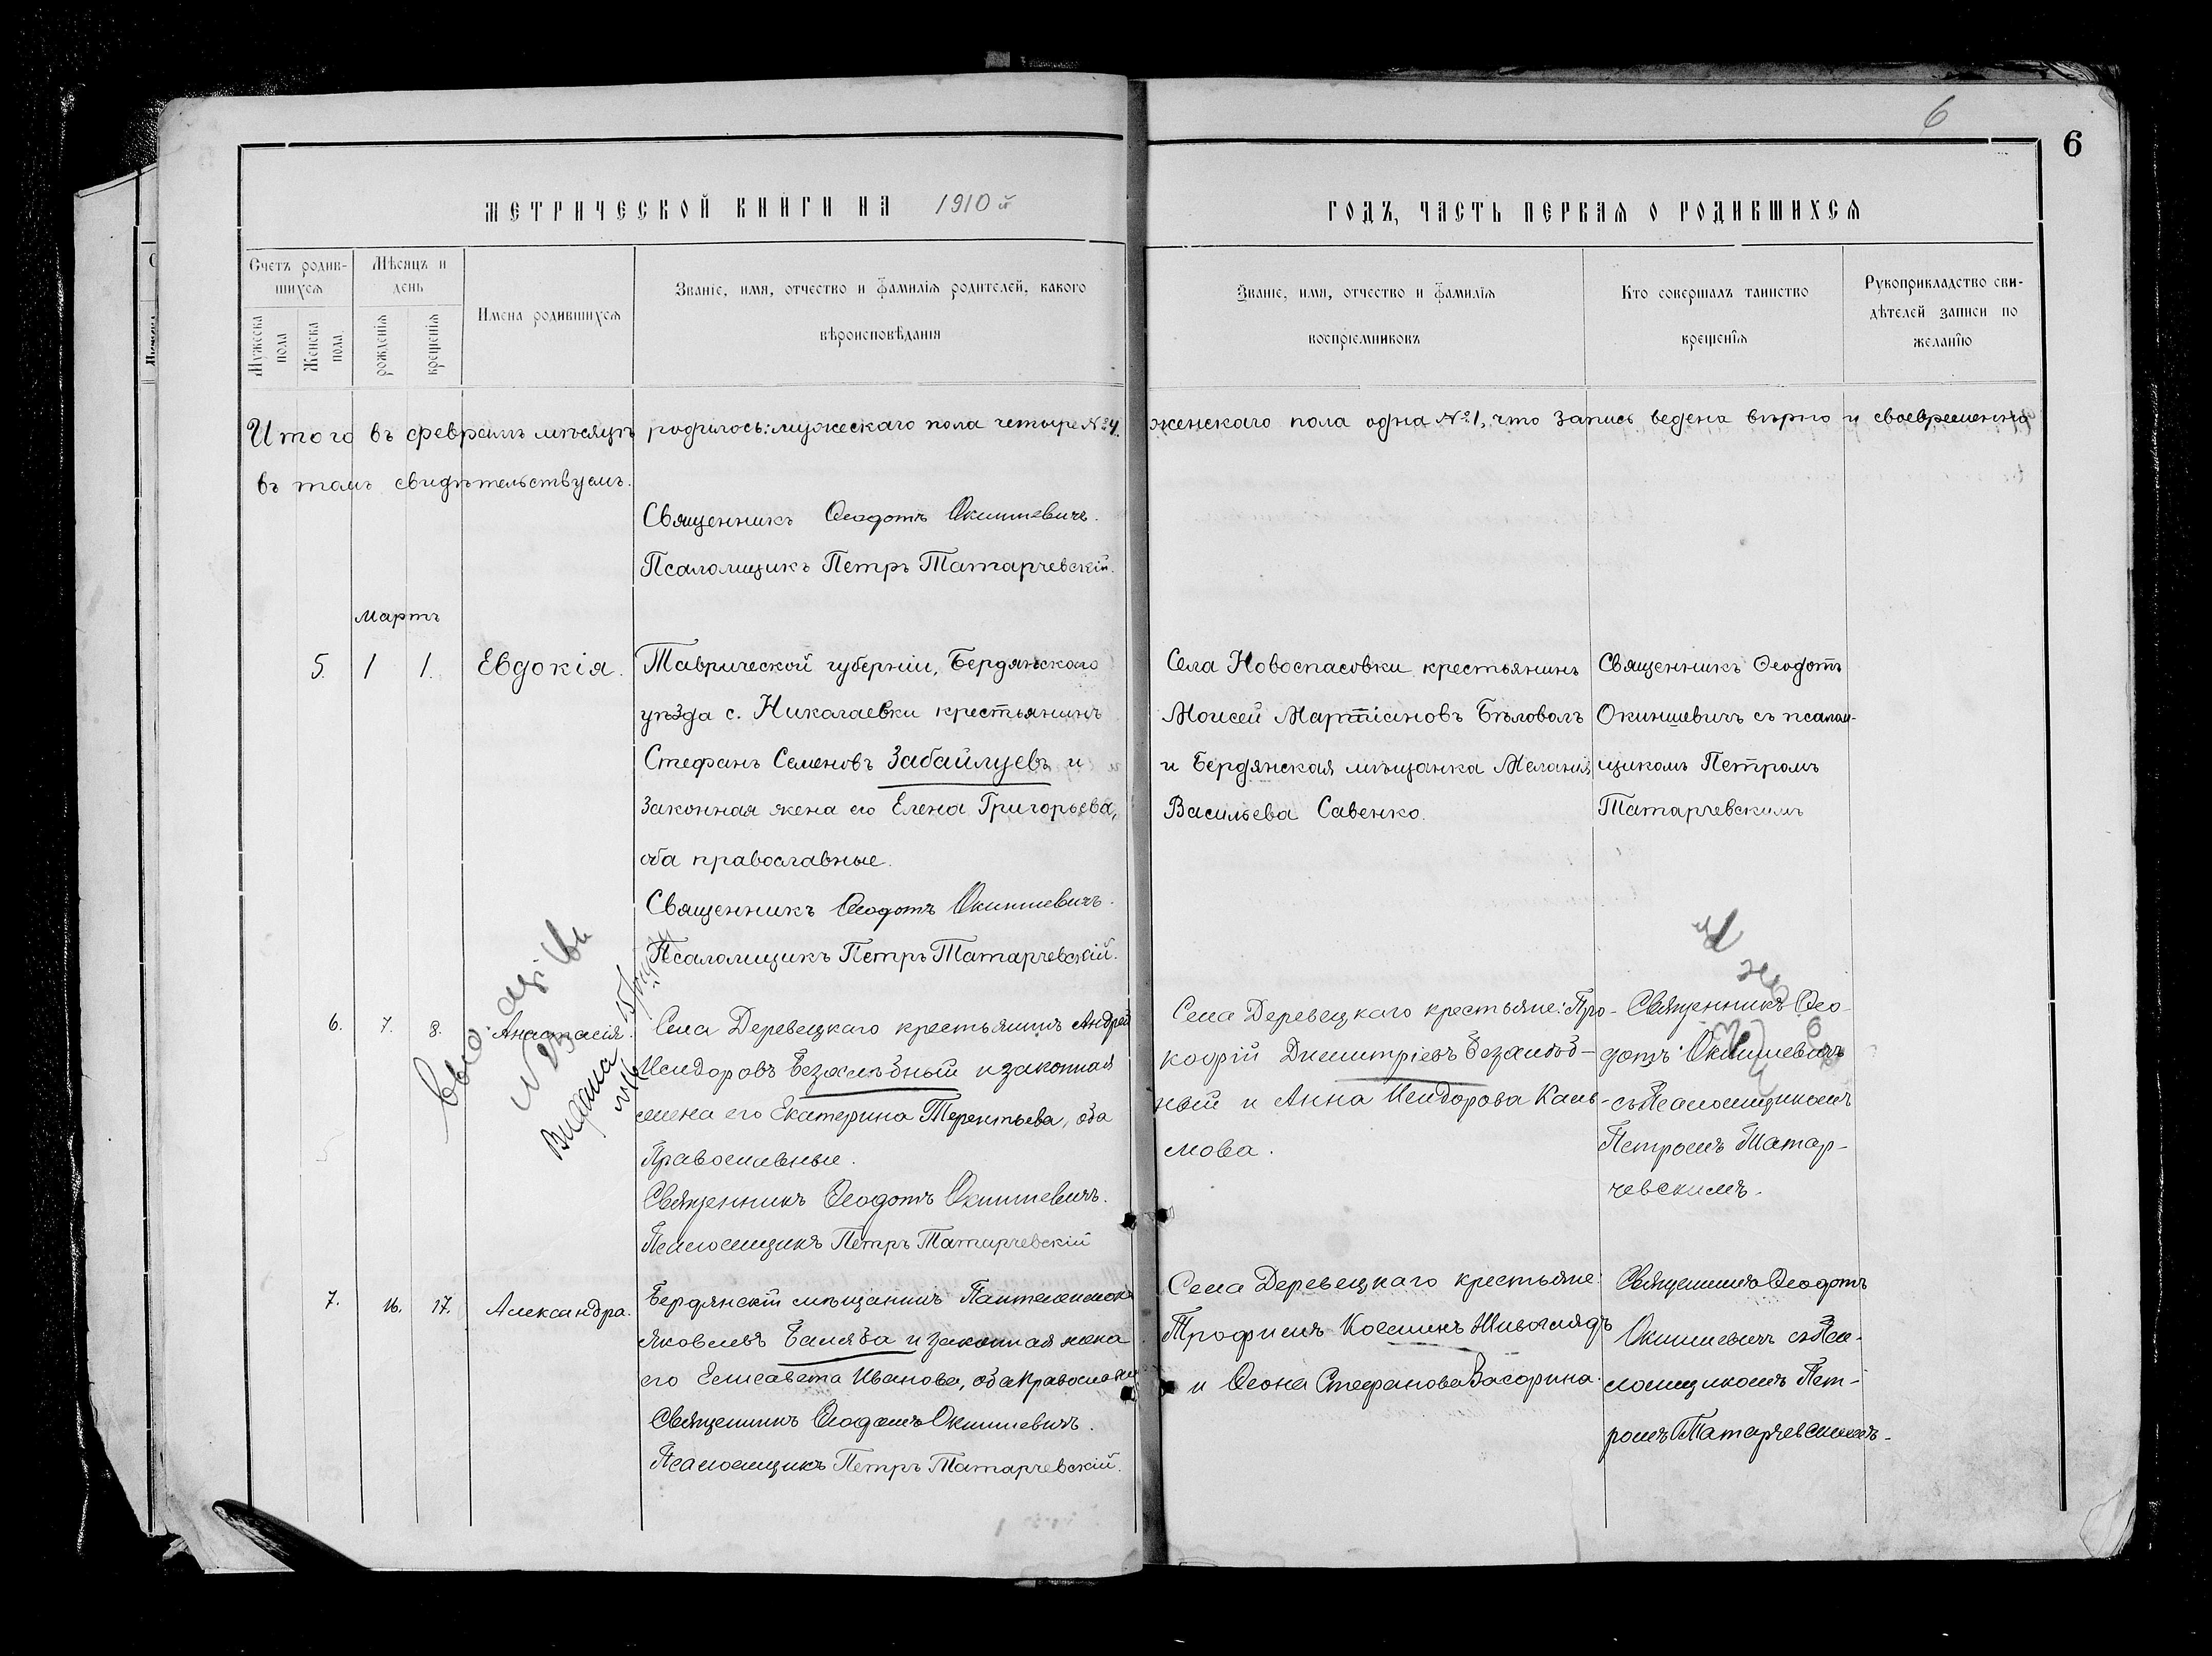 6
6
МЕТРИЧЕСКОЙ КНИГИ НА 1910 й
ГОДЪ, ЧАСТЬ ПЕРВАЯ О РОДИВШИХСЯ
Счетъ родив-
шихся
Мѣсяцъ и
день
Мужеска
пола
Женска
пола
рожденія
крещенія
Имена родившихся
Званіе, имя, отчество и фамилія родителей, какого
вѣроисповѣданія
Званіе, имя, отчество и фамилія
воспріемниковъ
Кто совершалъ таинство
крещенія
Рукоприкладство сви-
дѣтелей записи по
желанію
Итого въ февралѣ мѣсяцѣ родилось: мужескаго пола четыре №4. женскаго пола одна №1, что запись ведена вѣрно и своевременно
въ томъ свидѣтельствуемъ.
Священникъ Ѳеодотъ Окиншевичъ.
Псаломщикъ Петръ Татарчевскій.
Мартъ
5. 1 1. Евдокія.
Таврической губерніи, Бердянскаго
уѣзда с. Николаевки крестьянинъ
Стефанъ Семеновъ Забайлуевъ и
законная жена его Елена Григорьева,
оба православные.
Священникъ Ѳеодотъ Окиншевичъ.
Псаломщикъ Петръ Татарчевскій.
Села Новоспасовки крестьянинъ
Моисей Мартіановъ Бѣловолъ
и Бердянская мѣщанка Меланія
Васильева Савенко.
Священникъ Ѳеодотъ
Окиншевичъ съ псалом-
щикомъ Петромъ
Татарчевскимъ
6. 7. 8. Анастасія.
Выдана
Села Деревецкаго крестьянинъ Андрей
Исидоровъ Беззамѣбный и законная
жена его Екатерина Терентьева, оба
Православные.
Священникъ Ѳеодотъ Окиншевичъ.
Псаломщикъ Петръ Татарчевскій
Села Деревецкаго крестьяне: Про-
кофій Димитріевъ
ный и Анна Исидорова Кали-
мова.
Священникъ Ѳео-
дотъ Окиншевичъ
съ Псаломщикомъ
Петромъ Татар-
чевскимъ.
7. 16. 17. Александра.
Бердянскій мѣщанинъ Пантелеимонъ
Яковлевъ и законная жена
его Елисавета Иванова, оба православные
Священникъ Ѳеодотъ Окиншевичъ.
Псаломщикъ Петръ Татарчевскій.
Села Деревецкаго крестьяне:
Трофимъ Косминъ Живоглядъ
и Ѳеона Стефанова Засорина.
Священникъ Ѳеодотъ
Окиншевичъ съ Пса-
ломщикомъ Пет-
ромъ Татарчевскимъ.